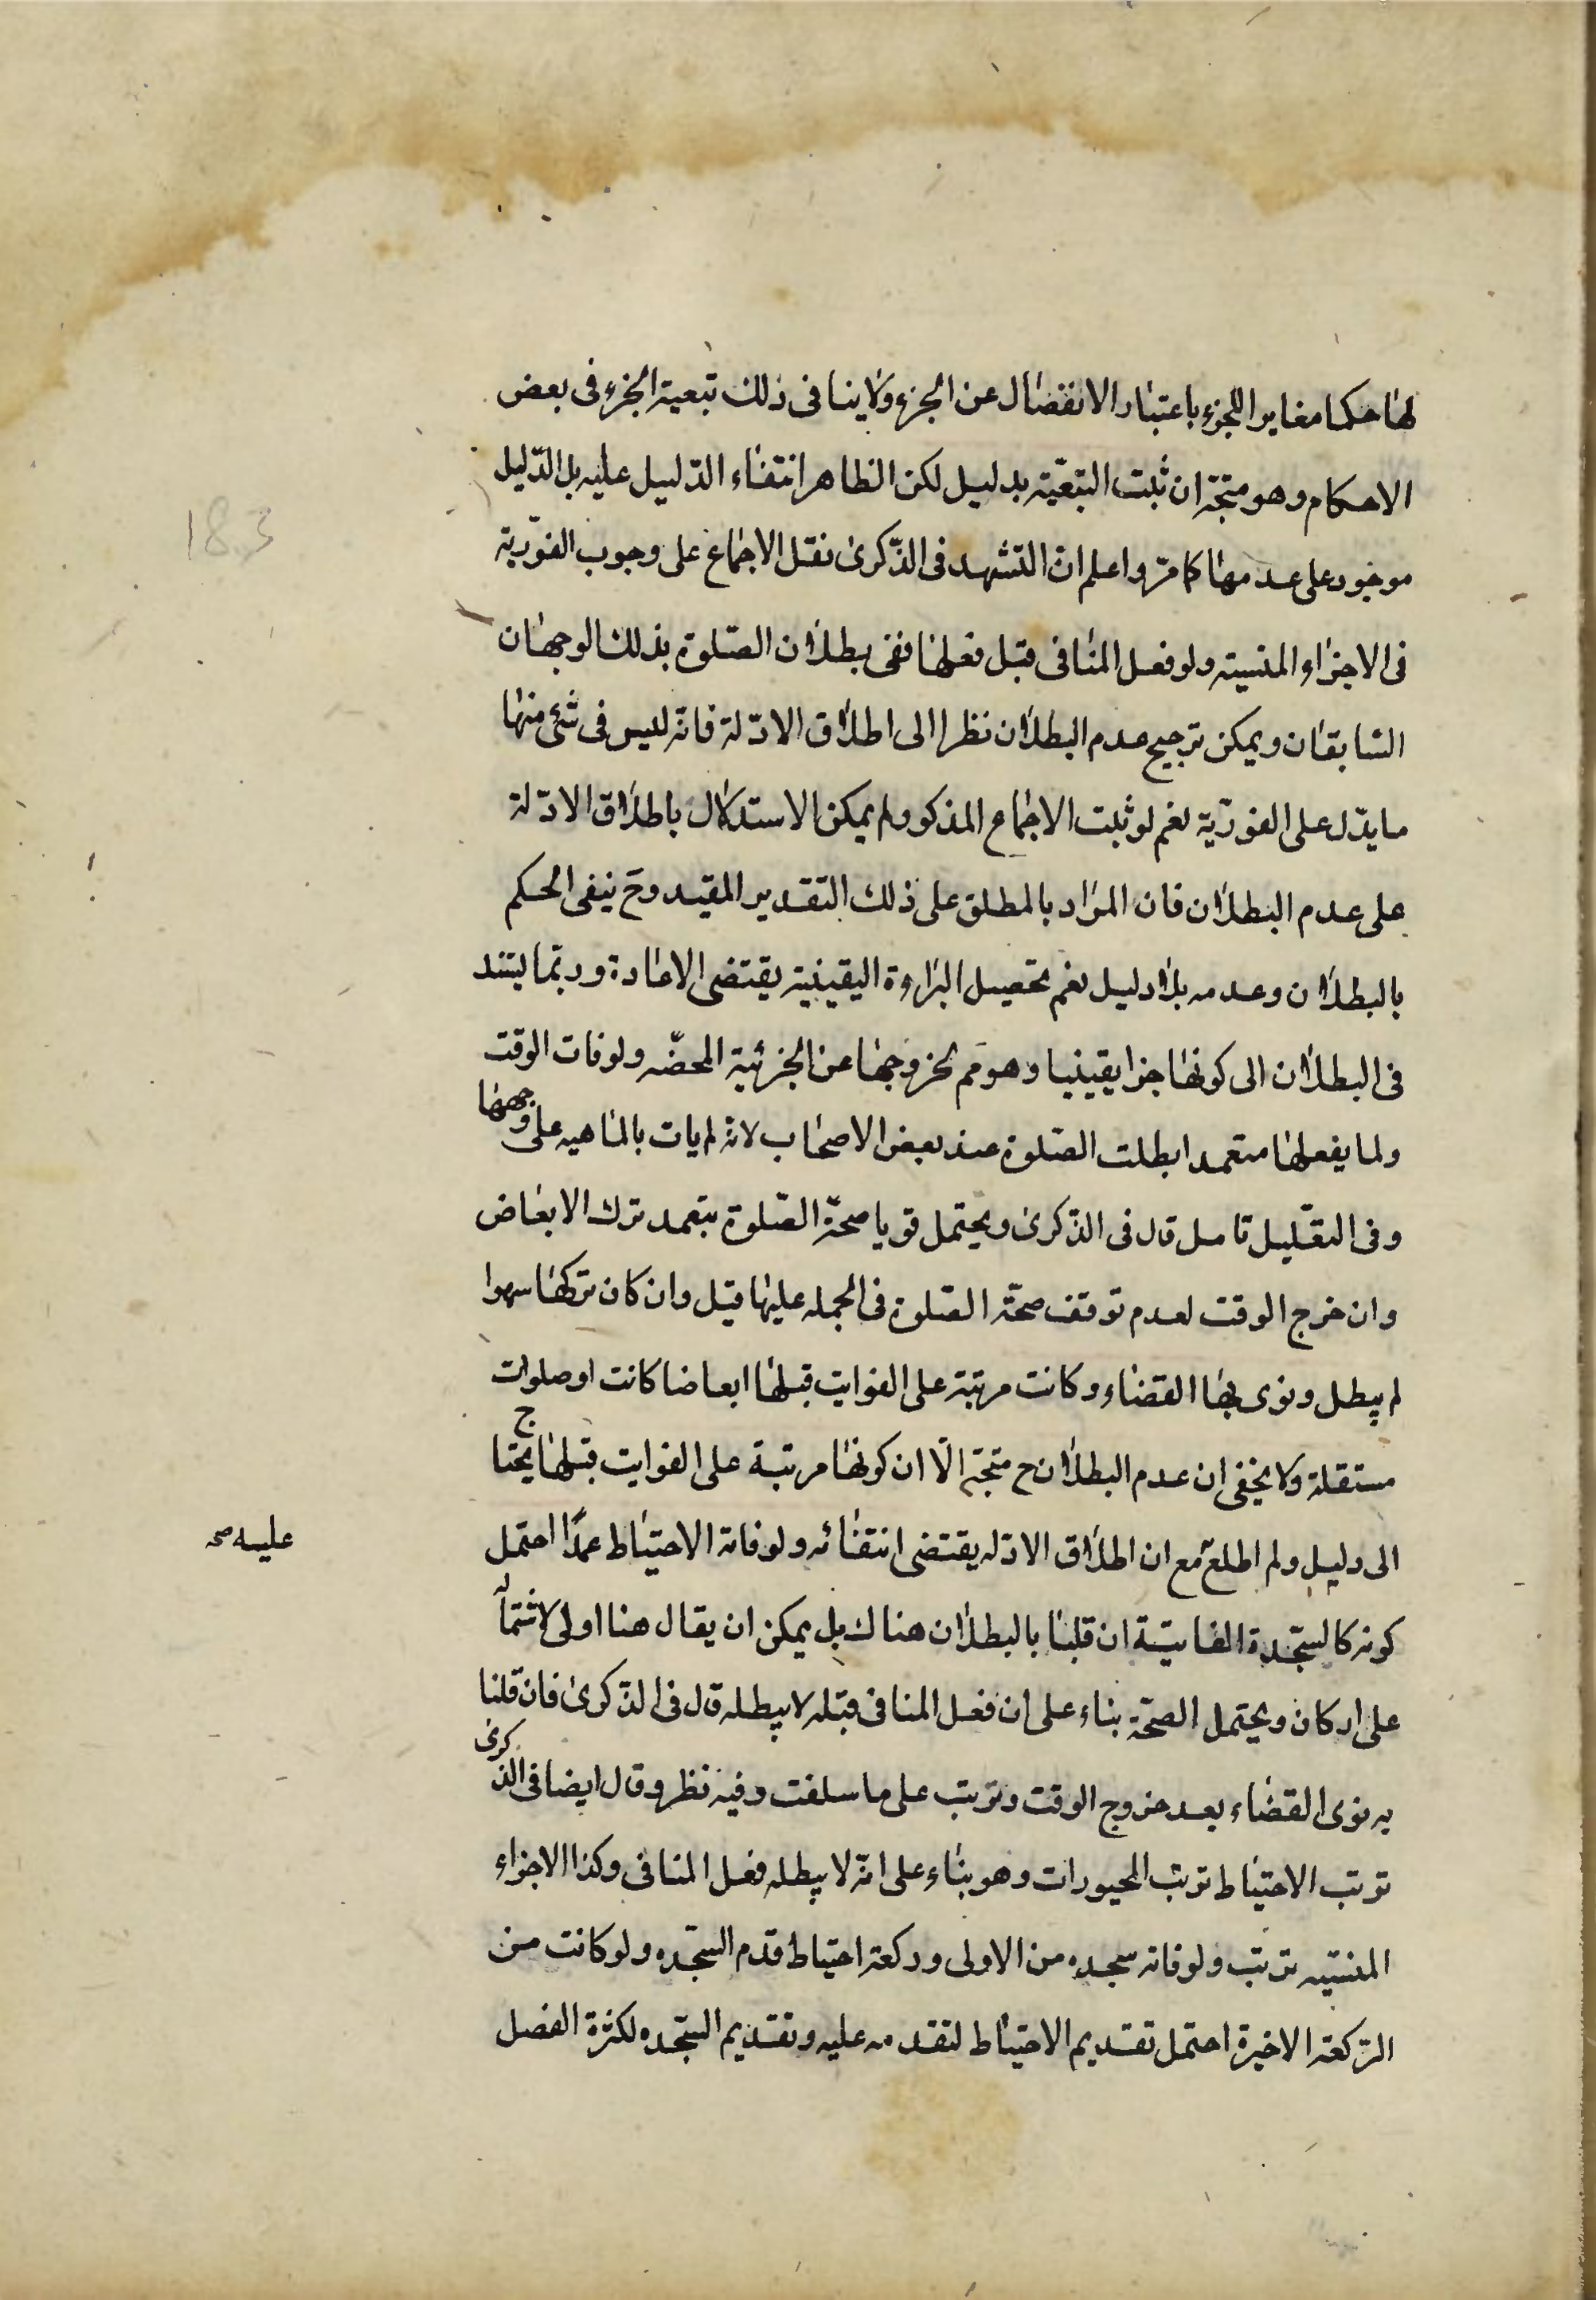 لها حكما مغايرا للجزء باعتبار الانفصال عن الجزء ولا ينافى ذلك تبعية الجزء فى بعض
الاحكام وهو متجّه ان ثبت التبعيّة بدليل لكن الظاهر انتفاء الدّليل عليه بل الدّليل
موجود على عدمها كما مرّ واعلم انّ الشهيد فى الذّكرى نقل الاجماع على وجوب الفوّرية
183
فى الاجزاء المنسيّة ولو فعل المنافى قبل فعلها ففى بطلان الصّلوة بذلك الوجهان
السّابقان ويمكن ترجيح عدم البطلان نظرا الى اطلاق الادّلة فانّه ليس فى شئ منها
ما يدّل على الفورّية نعم لو ثبت الاجماع المذكور لم يمكن الاستدلال باطلاق الادّلة
على عدم البطلان فان المراد بالمطلق على ذلك التقدير المقيد وح ينفى الحكم
بالبطلان وعدمه بلا دليل نعم تحصيل البراءة اليقينية يقتضى الاعادة وربّما يستند
فى البطلان الى كونها جزا يقينيا وهو مم لخروجها عن الجزئية المحضّه ولو فات الوقت
ولما يفعلها متعمدا بطلت الصّلوة عند بعض الاصحاب لانّه لم يات بالماهيه على وجهها
وفى التعّليل تامل قال فى الذّكرى ويحتمل قويا صحّة الصّلوة بتعمد ترك الابعاض
وان خرج الوقت لعدم توقف صحّة الصّلوة فى الجمله عليها قيل وان كان تركها سهوا
لم يبطل ونوى بها القضاء وكانت مرتبة على الفوايت قبلها ابعاضا كانت او صلوات
مستقلة ولا يخفى ان عدم البطلان ح متجّه الّا ان كونها مرتبة على الفوايت قبلها يحتاج
الى دليل ولم اطلع مع ان اطلاق الادّله يقتضى انتفائه ولو فاته الاحتياط عمدًا احتمل
عليه صح
كونه كالسجّدة الفايتة ان قلنا بالبطلان هناك بل يمكن ان يقال هنا اولى لاشتماله
على اركان ويحتمل الصحّة بناء على ان فعل المنافى قبله لا يبطله قال فى الذّكرى فان قلنا
به نوى القضاء بعد خروج الوقت وترتب على ما سلفت وفيه نظر وقال ايضا فى الذّكرى
ترتب الاحتياط ترتب المجبورات وهو بناء على انّه لا يبطله فعل المنافى وكذا الاجزاء
المنسّيه ترتب ولو فاته سجده من الاولى وركعة احتياط قدم السجّده ولو كانت من
الرّكعة الاخيرة احتمل تقديم الاحتياط لتقدمه عليه وتقديم السجّده لكثرة الفصل